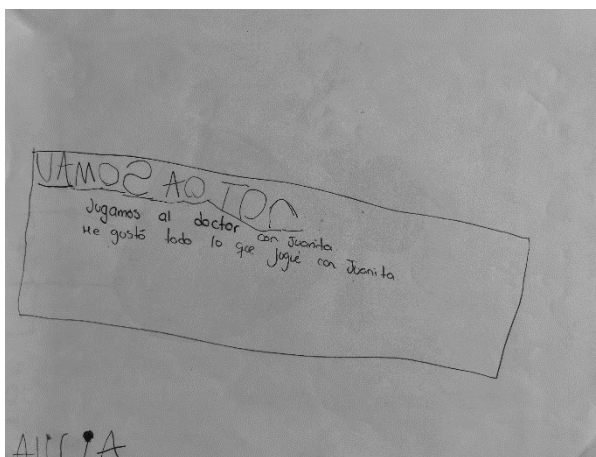 VAMOS AO TOR
Jugamos al doctor con Juanita
Me gustó todo lo que jugué con Juanita
ALICIA